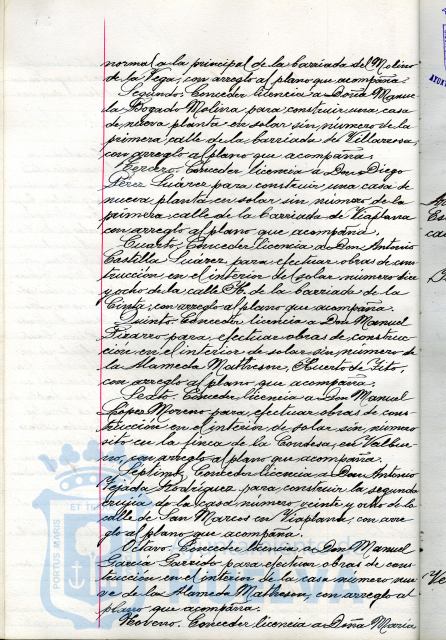 normal a la principal de la barriada del Molino
de la Vega, con arreglo al plano que acompaña.
Segundo. Conceder licencia a Doña Manue
la Bogado Molina para construir una casa
de nueva planta en solar sin número de la
primera calle de la barriada de Villarrosa,
con arreglo al plano que acompaña.
Tercero. Conceder licencia a Don Diego
Pérez Suárez para construir una casa de
nueva planta en solar sin número de la
primera calle de la barriada de Viaplana
con arreglo al plano que acompaña.
Cuarto. Conceder licencia a Don Antonio
Castilla Suárez para efectuar obras de cons
trucción en el interior del solar número diez
y ocho de la calle H. de la barriada de la
Cinta, con arreglo al plano que acompaña.
Quinto. Conceder licencia a Don Manuel
Pizarro para efectuar obras de construc
ción en el interior de solar sin número de
la Alameda Matheson, Huerto de Tito,
con arreglo al plano que acompaña.
Sexto. Conceder licencia a Don Manuel
López Moreno para efectuar obras de cons
trucción en el interior de solar sin número
sito en la finca de la Condesa, en Valbue
no, con arreglo al plano que acompaña.
Septimo. Conceder licencia a Don Antonio
Rodríguez para construir la segunda
crujía de la casa número veinte y ocho de la
calle de San Marcos en Viaplana, con arre
glo al plano que acompaña.
Octavo. Conceder licencia a Don Manuel
García Garrido para efectuar obras de cons
trucción en el interior de la casa número nue
ve de la Alameda Matheson, con arreglo al
plano que acompaña.
Noveno. Conceder licencia a Doña María
PORTUS MARIS
ET TE